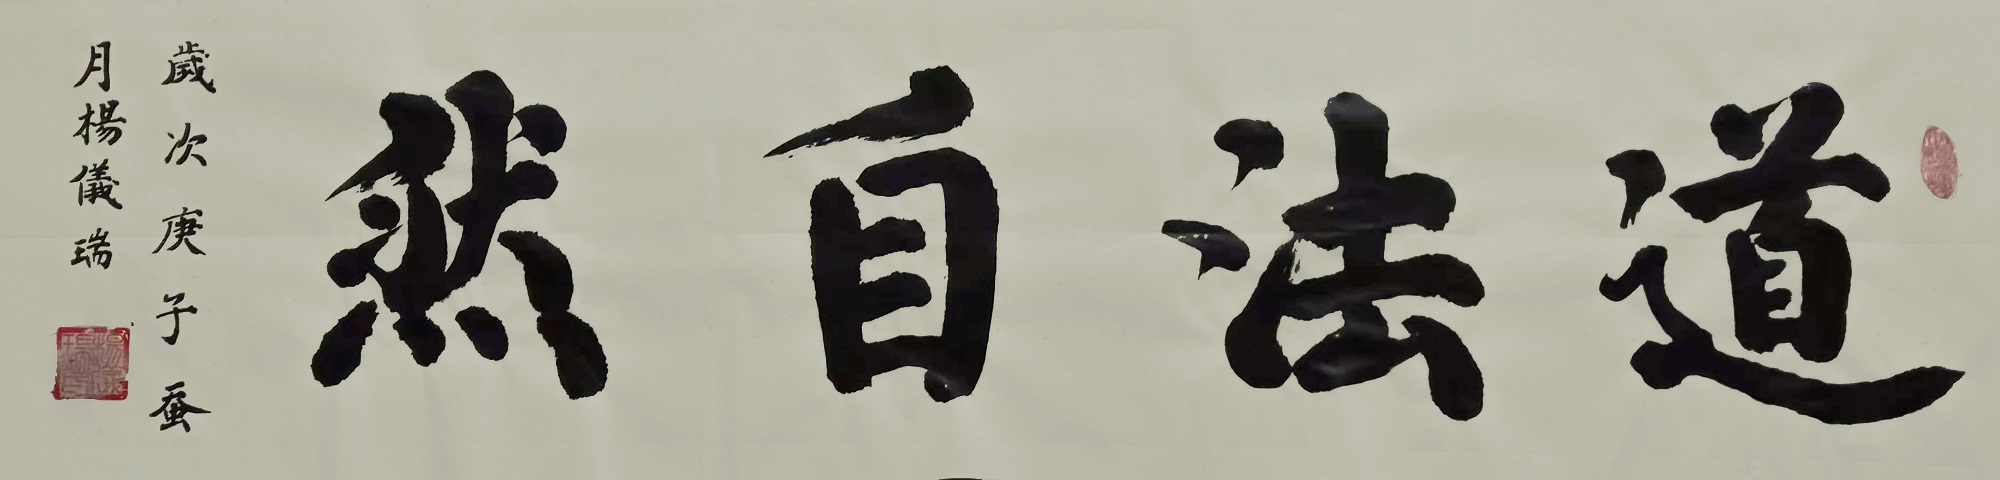 道法自然
歲次庚子蚕
月楊儀瑞